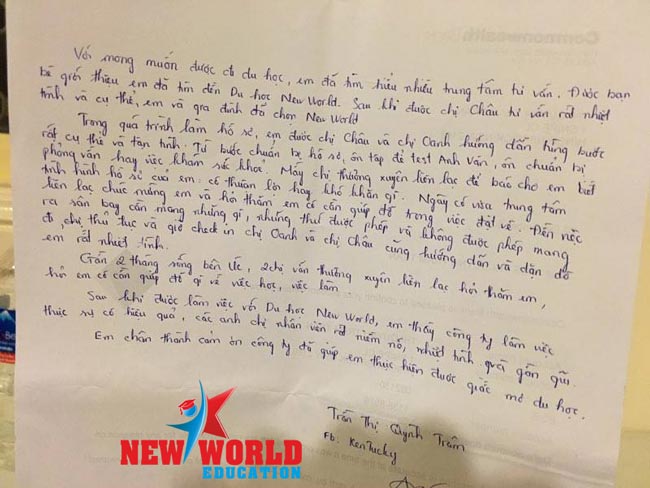 Với mong muốn được đi du học, em đã tìm hiểu nhiều trung tâm tư vấn. Được bạn
bè giới thiệu em đã tìm đến Du học New World. Sau khi được chị Châu tư vấn rất nhiệt
tình và cụ thể, em và gia đình đã chọn New World
Trong quá trình làm hồ sơ, em được chị Châu và chị Oanh hướng dẫn từng bước
rất cụ thể và tận tình. Từ bước chuẩn bị hồ sơ, ôn tập để test Anh Văn, ôn chuẩn bị
phỏng vấn hay việc khám sức khoẻ. Mấy chị thường xuyên liên lạc để báo cho em biết
tình hình hồ sơ của em có thuận lợi hay khó khăn gì. Ngày có visa trung tâm
liên lạc chúc mừng em và hỏi thăm em có cần giúp đỡ trong việc đặt vé. Đến việc
ra sân bay cần mang những gì, những thứ được phép và không được phép mang
đi, chị thủ tục và giờ check in chị Oanh và chị Châu cũng hướng dẫn và dặn dò
em rất nhiệt tình.
Gần 2 tháng sống bên Úc, 2 chị vẫn thường xuyên liên lạc hỏi thăm em,
hỏi em có cần giúp đỡ gì về việc học, việc làm
Sau khi được làm việc với Du học New World, em thấy công ty làm việc
thực sự có hiệu quả, các anh chị nhân viên rất niềm nở, nhiệt tình và gần gũi.
Em chân thành cảm ơn công ty đã giúp em thực hiện được giấc mơ du học.
Trần Thị Quỳnh Trâm
Fb: Kentucky
NEW WORLD
EDUCATION
Commonwealth